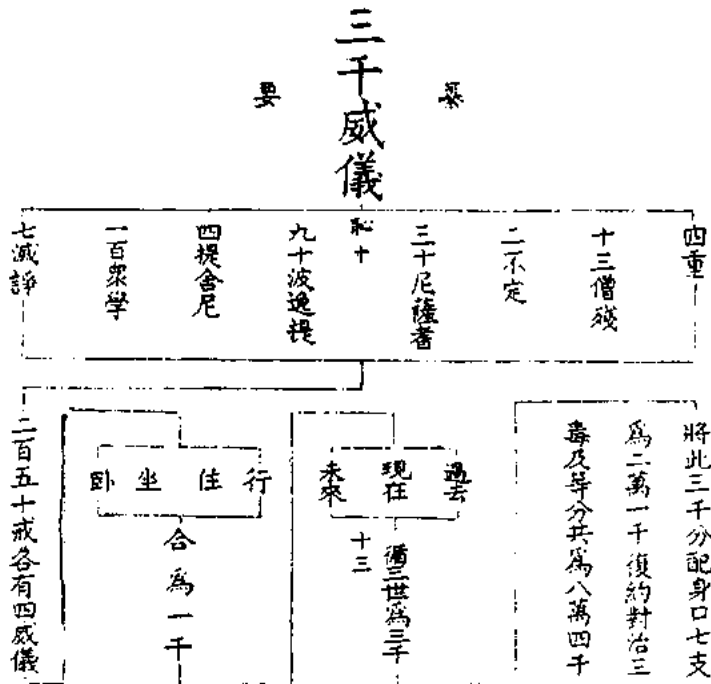 三千威儀
要
四重
十三僧殘
二不定
三十尼薩耆
恥十
九十波逸提
四提舍尼
一百眾學
七滅諍
將此三千分配身口七支
為二萬一千復約對治三
毒及等分共為八萬四千
過去
現在
未來
循三世為三千
十三
行
住
坐
卧
合為一千
二百五十戒各有四威儀